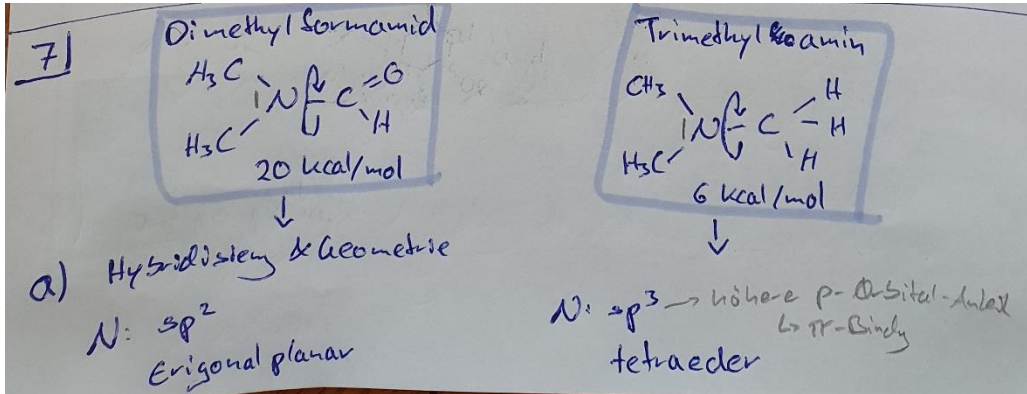 7)
Dimethylformamid
H₃C
N – C
=O
H
H₃C
20 kcal/mol
↓
Trimethyl amin
CH₃
N – C
H
– H
H
H₃C
6 kcal/mol
↓
a) Hybridisierung & Geometrie
N: sp²
trigonal planar
N: sp³ → höhere p-Orbital-Anteil
↳ π-Bindg
tetraeder